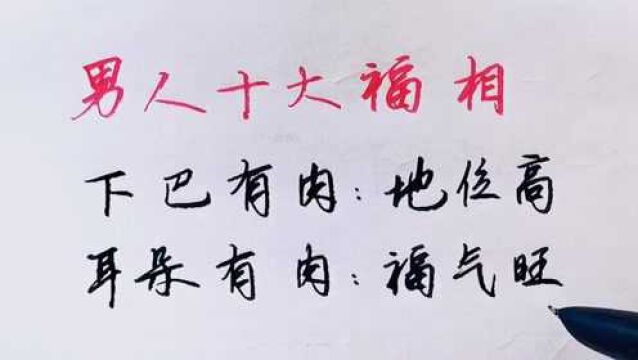 男人十大福相
下巴有肉：地位高
耳朵有肉：福气旺